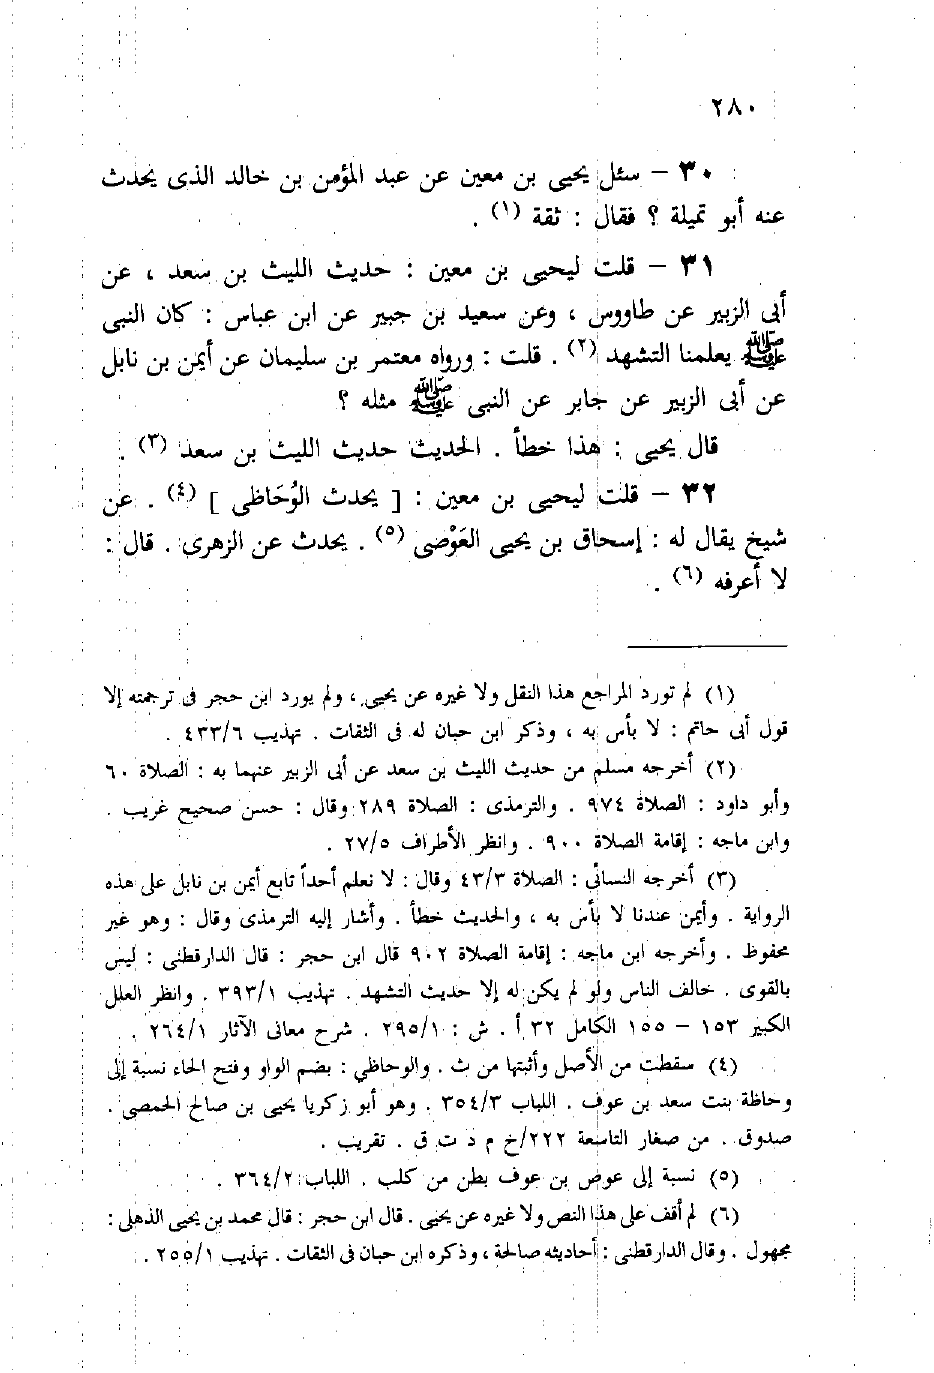 ٢٨٠
٣٠ – سئل يحيى بن معين عن عبد المؤمن بن خالد الذى يحدث
عنه أبو تميلة ؟ فقال : ثقة (١) .
٣١ – قلت ليحيى بن معين : حديث الليث بن سعد ، عن
أبى الزبير عن طاووس ، وعن سعيد بن جبير عن ابن عباس : كان النبى
ﷺ يعلمنا التشهد (٢) . قلت : ورواه معتمر بن سليمان عن أيمن بن نابل
عن أبى الزبير عن جابر عن النبى ﷺ مثله ؟
قال يحيى : هذا خطأ . الحديث حديث الليث بن سعد (٣) .
٣٢ – قلت ليحيى بن معين : [ يحدث الوُحَاظى ] (٤) . عن
شيخ يقال له : إسحاق بن يحيى العَوْصى (٥) . يحدث عن الزهرى . قال :
لا أعرفه (٦) .
(١) لم تورد المراجع هذا النقل ولا غيره عن يحيى ، ولم يورد ابن حجر فى ترجمته إلا
قول أبى حاتم : لا بأس به ، وذكر ابن حبان له فى الثقات . تهذيب ٤٣٣/٦ .
(٢) أخرجه مسلم من حديث الليث بن سعد عن أبى الزبير عنهما به : الصلاة ٦٠
وأبو داود : الصلاة ٩٧٤ . والترمذى : الصلاة ٢٨٩ وقال : حسن صحيح غريب .
وابن ماجه : إقامة الصلاة ٩٠٠ . وانظر الأطراف ٢٧/٥ .
(٣) أخرجه النسائى : الصلاة ٤٣/٣ وقال : لا نعلم أحداً تابع أيمن بن نابل على هذه
الرواية . وأيمن عندنا لا بأس به ، والحديث خطأ . وأشار إليه الترمذى وقال : وهو غير
محفوظ . وأخرجه ابن ماجه : إقامة الصلاة ٩٠٢ قال ابن حجر : قال الدارقطنى : ليس
بالقوى . خالف الناس ولو لم يكن له إلا حديث التشهد . تهذيب ٣٩٣/١ . وانظر العلل
الكبير ١٥٣ – ١٥٥ الكامل ٣٢ أ . ش : ٢٩٥/١ . شرح معانى الآثار ٢٦٤/١ .
(٤) سقطت من الأصل وأثبتها من ث . والوحاظي : بضم الواو وفتح الحاء نسبة إلى
وحاظة بنت سعد بن عوف . اللباب ٣٥٤/٣ . وهو أبو زكريا يحيى بن صالح الحمصى .
صدوق . من صغار التاسعة ٢٢٢/خ م د ت ق . تقريب .
(٥) نسبة إلى عوص بن عوف بطن من كلب . اللباب ٣٦٤/٢ .
(٦) لم أقف على هذا النص ولا غيره عن يحيى . قال ابن حجر : قال محمد بن يحيى الذهلى :
مجهول . وقال الدارقطنى : أحاديثه صالحة ، وذكره ابن حبان فى الثقات . تهذيب ٢٥٥/١ .